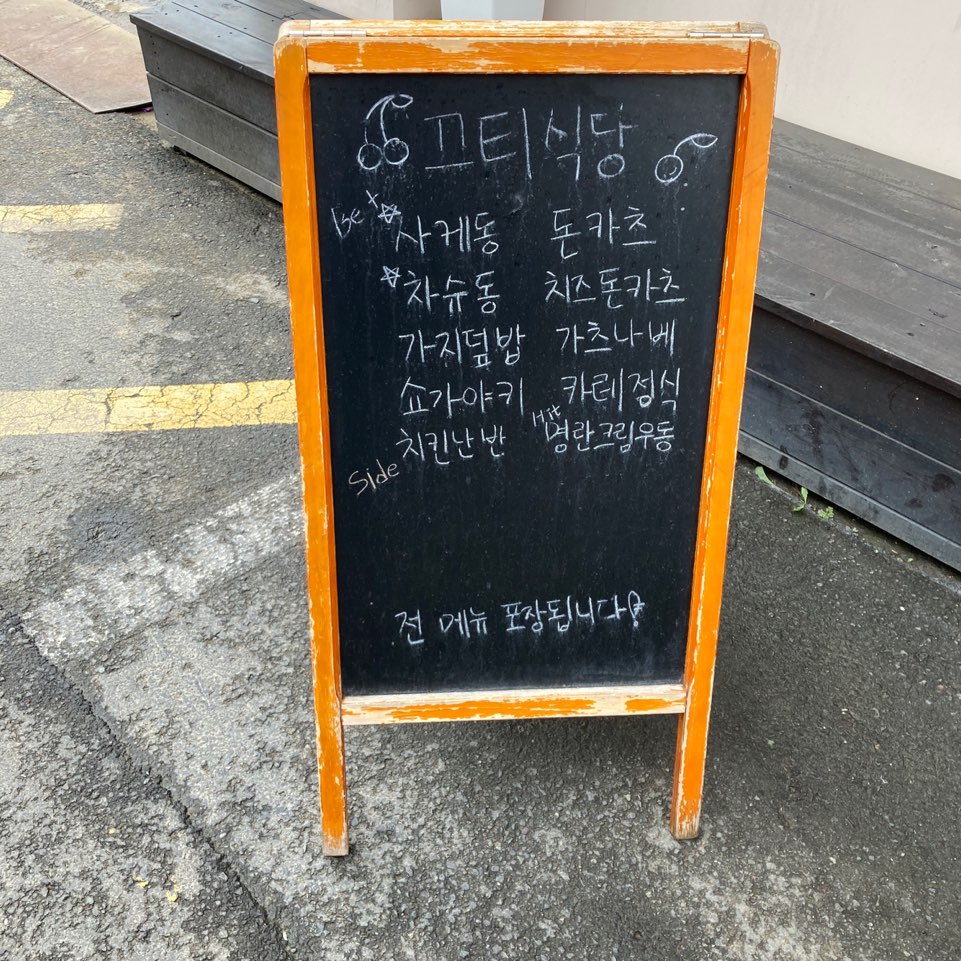 끄티식당
Best 사케동 돈카츠
차슈동 치즈돈카츠
가지덮밥 가츠나베
쇼가야키 카레정식
치킨난반 Hit 명란크림우동
Side
전 메뉴 포장됩니다!